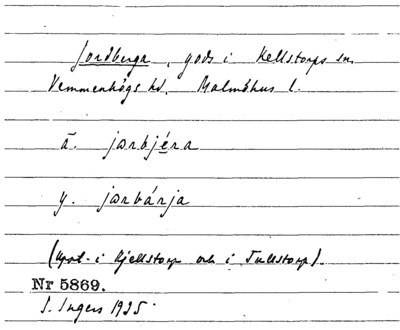 Jordberga, gods i Kellstorps sn
Vemmenhögs hd. Malmöhus l.
ä. jɑrbjéra
y. jɑrbárja
(Uppt. i Kjellstorp och i Tullstorp).
Nr 5869.
I. Ingers 1925.